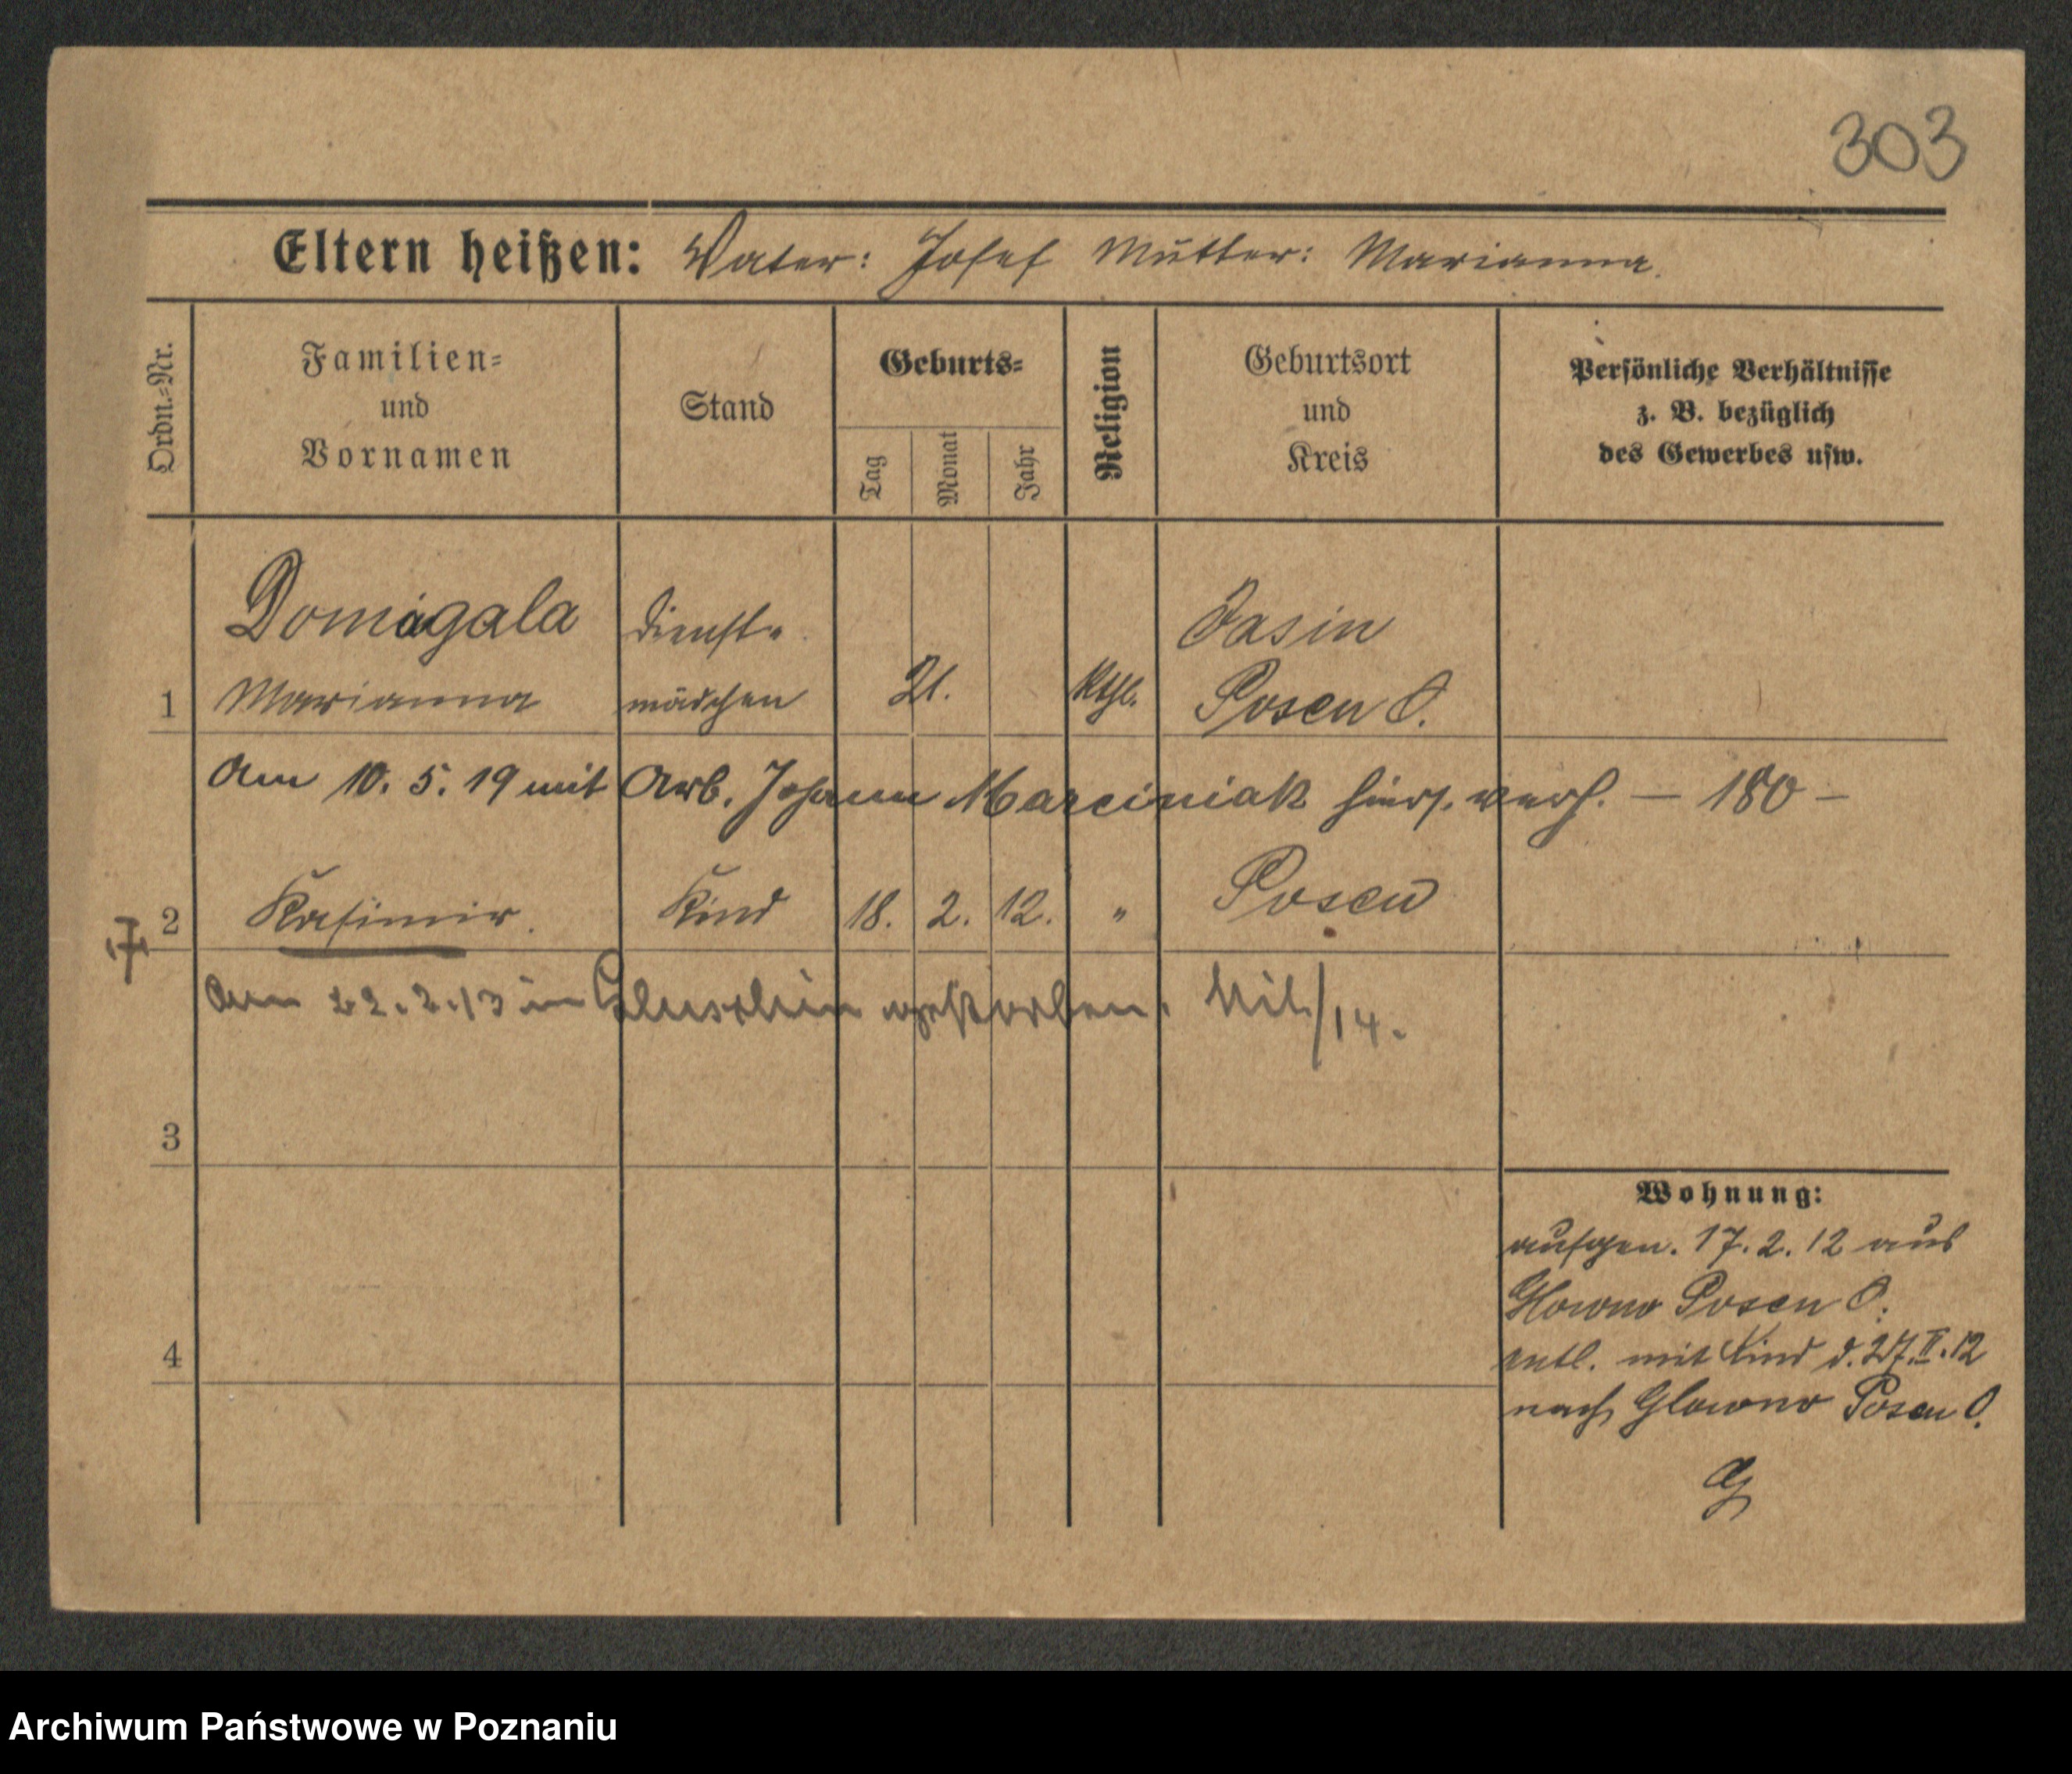 303
Eltern heißen: Vater: Josef Mutter: Marianna.
Ordn.=Nr.
Familien=
und
Vornamen
Stand
Geburts=
Tag
Monat
Jahr
Religion
Geburtsort
und
Kreis
Persönliche Verhältnisse
z. B. bezüglich
des Gewerbes usw.
Domagala
Dienst=
Jasin
1 Marianna mädchen 21. kthl. Posen O.
Am 10. 5. 19 mit Arb. Johann Marciniak hiers. verh. — 180 —
2 Kasimir. Kind 18. 2. 12. " Posen
Am 22. 2. 13 in Gluschin gestorben. /14.
3
4
Wohnung:
aufgen. 17. 2. 12 aus
Glowno Posen O.
entl. mit Kind d. 27. II. 12
nach Glowno Posen O.
Archiwum Państwowe w Poznaniu